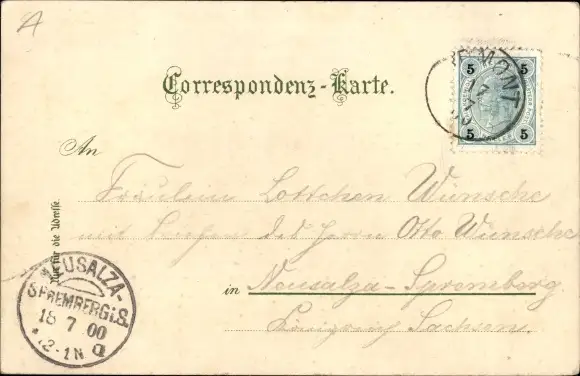 A
Correspondenz-Karte.
5 5
5 5
An
Fräulein Lottchen Wünsche
mit des Herrn Otto Wünsche
in Neusalza-Spremberg
Königreich Sachsen.
Nur für die Adresse.
NEUSALZA-
SPREMBERG i.S.
18 7 00
12-1N